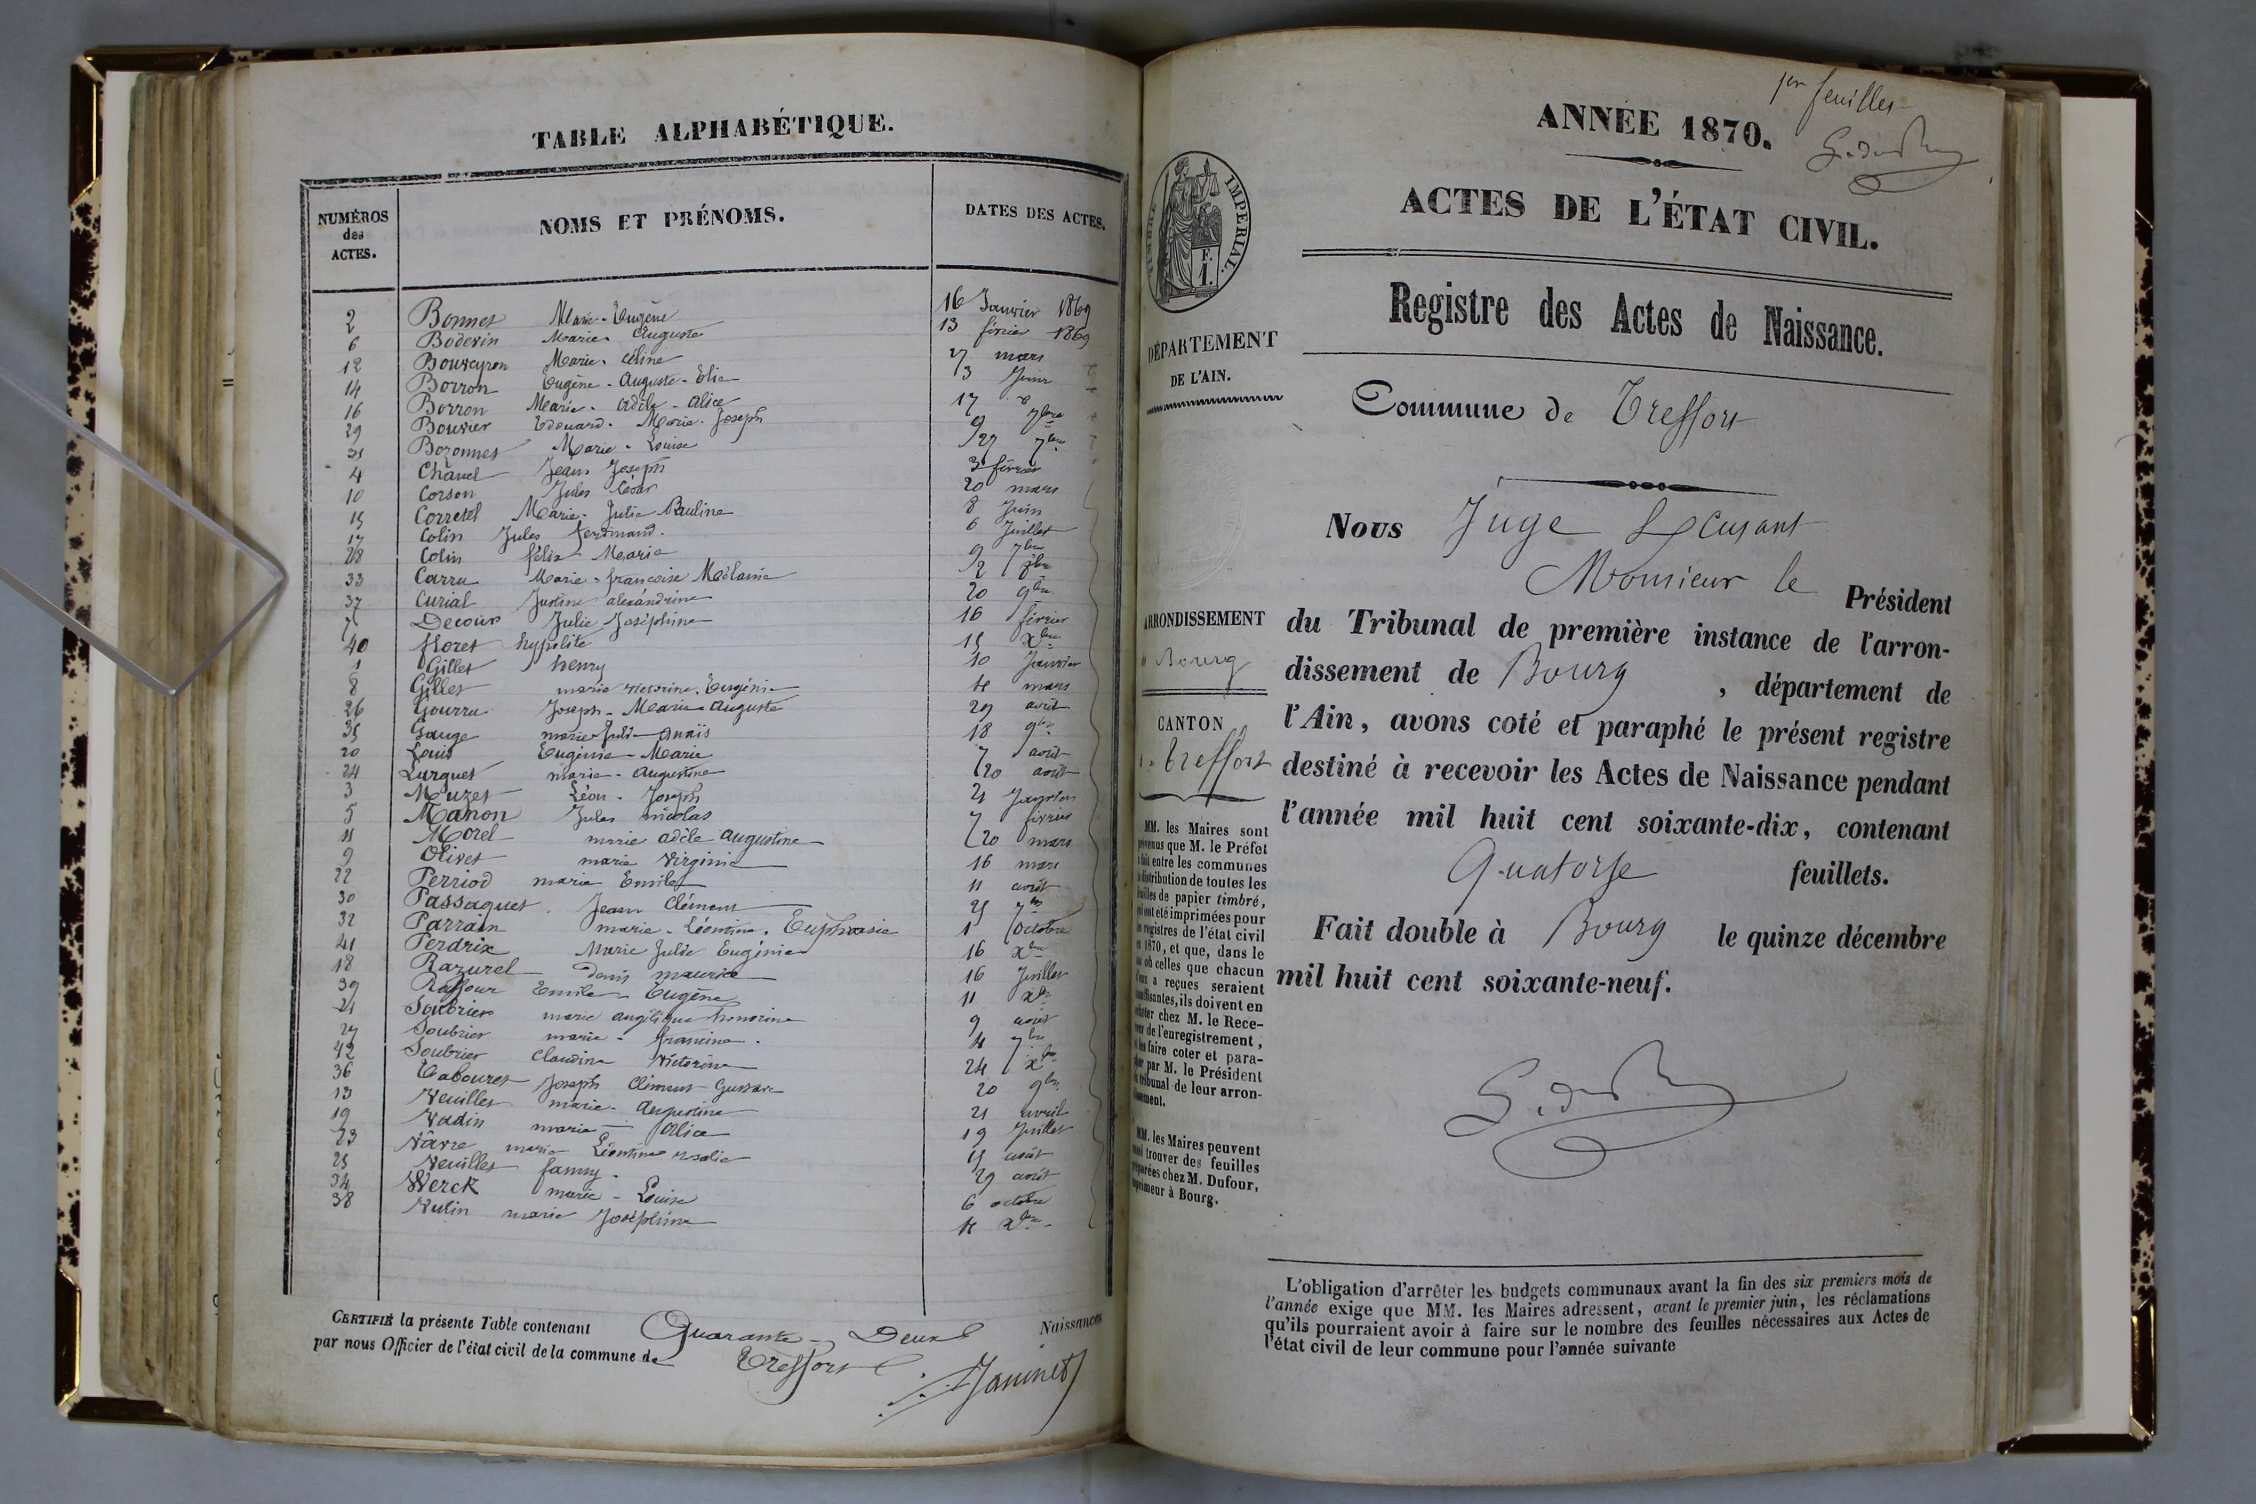 TABLE ALPHABÉTIQUE.
NUMÉROS des ACTES. NOMS ET PRÉNOMS. DATES DES ACTES.
2 Bonnet Marie-Eugène 16 Janvier 1869
6 Boderin Marie Auguste 13 février 1869
12 Bouveyron Marie-Céline 27 mars
14 Borron Eugène-Auguste-Elie 3 Juin
16 Borron Marie-Adèle-Alice 17 d°
29 Bouvier Edouard-Marie-Joseph 9 7bre
31 Bozonnet Marie-Louise 27 7bre
4 Chanel Jean Joseph 3 février
10 Corson Jules César 20 mars
15 Corretel Marie-Julie Pauline 8 Juin
17 Colin Jules ferdinand. 6 Juillet
28 Colin félix Marie 9 7bre
33 Carru Marie-françoise Mélanie 2 8bre
37 Curial Justine alexandrine 20 9bre
7 Decour Julie Joséphine 16 février
40 floret hypolite 15 Xbre
1 Gillet henry 10 Janvier
8 Gillet marie victorine Eugénie 11 mars
26 Gourru Joseph-Marie Auguste 29 août
35 Gauge marie Julie Anaïs 18 9bre
20 Louis Eugénie-Marie 7 août
24 Lurguet marie-Augustine 20 août
3 Muzet Léon-Joseph 21 Janvier
5 Manon Jules nicolas 7 février
11 Morel marie adèle augustine 20 mars
9 Olivet marie Virginie 16 mars
22 Perriod marie Emile 11 août
30 Passaquet Jean Clément 25 7bre
32 Parrain marie-Léontine. Euphrasie 1 Octobre
41 Perdrix Marie Julie Eugénie 16 Xbre
18 Razurel denis maurice 16 Juillet
39 Raffour Emile Eugène 11 Xbre
21 Soubrier marie angélique honorine 9 août
27 Soubrier marie-francine. 4 7bre
42 Soubrier Claudine Victorine 24 Xbre
36 Tabouret Joseph Clément Gustave 20 9bre
13 Veuillet marie-Augustine 21 avril
19 Vadin marie-Alice 19 Juillet
23 Vâvre marie Léontine rosalie 15 août
25 Veuillet fanny. 29 août
34 Werck marie-Louise 6 octobre
38 Vulin marie Joséphine 11 Xbre
CERTIFIÉ la présente Table contenant Quarante-Deux Naissances
par nous Officier de l'état civil de la commune de Treffort
Janinet
1er feuillet
ANNÉE 1870.
ACTES DE L'ÉTAT CIVIL.
TIMBRE IMPÉRIAL.
F.
1.
Registre des Actes de Naissance.
DÉPARTEMENT
DE L'AIN.
Commune de Treffort
Nous Juge Excusant
Monsieur le Président
ARRONDISSEMENT
Bourg
du Tribunal de première instance de l'arron-
dissement de Bourg, département de
CANTON
Treffort
l'Ain, avons coté et paraphé le présent registre
destiné à recevoir les Actes de Naissance pendant
l'année mil huit cent soixante-dix, contenant
Quatorze feuillets.
Fait double à Bourg le quinze décembre
mil huit cent soixante-neuf.
MM. les Maires sont
prévenus que M. le Préfet
a fait entre les communes
la distribution de toutes les
feuilles de papier timbré,
qui ont été imprimées pour
les registres de l'état civil
de 1870, et que, dans le
cas où celles que chacun
d'eux a reçues seraient
insuffisantes, ils doivent en
acheter chez M. le Rece-
veur de l'enregistrement,
et les faire coter et para-
pher par M. le Président
du tribunal de leur arron-
dissement.
MM. les Maires peuvent
aussi trouver des feuilles
préparées chez M. Dufour,
imprimeur à Bourg.
L'obligation d'arrêter les budgets communaux avant la fin des six premiers mois de
l'année exige que MM. les Maires adressent, avant le premier juin, les réclamations
qu'ils pourraient avoir à faire sur le nombre des feuilles nécessaires aux Actes de
l'état civil de leur commune pour l'année suivante